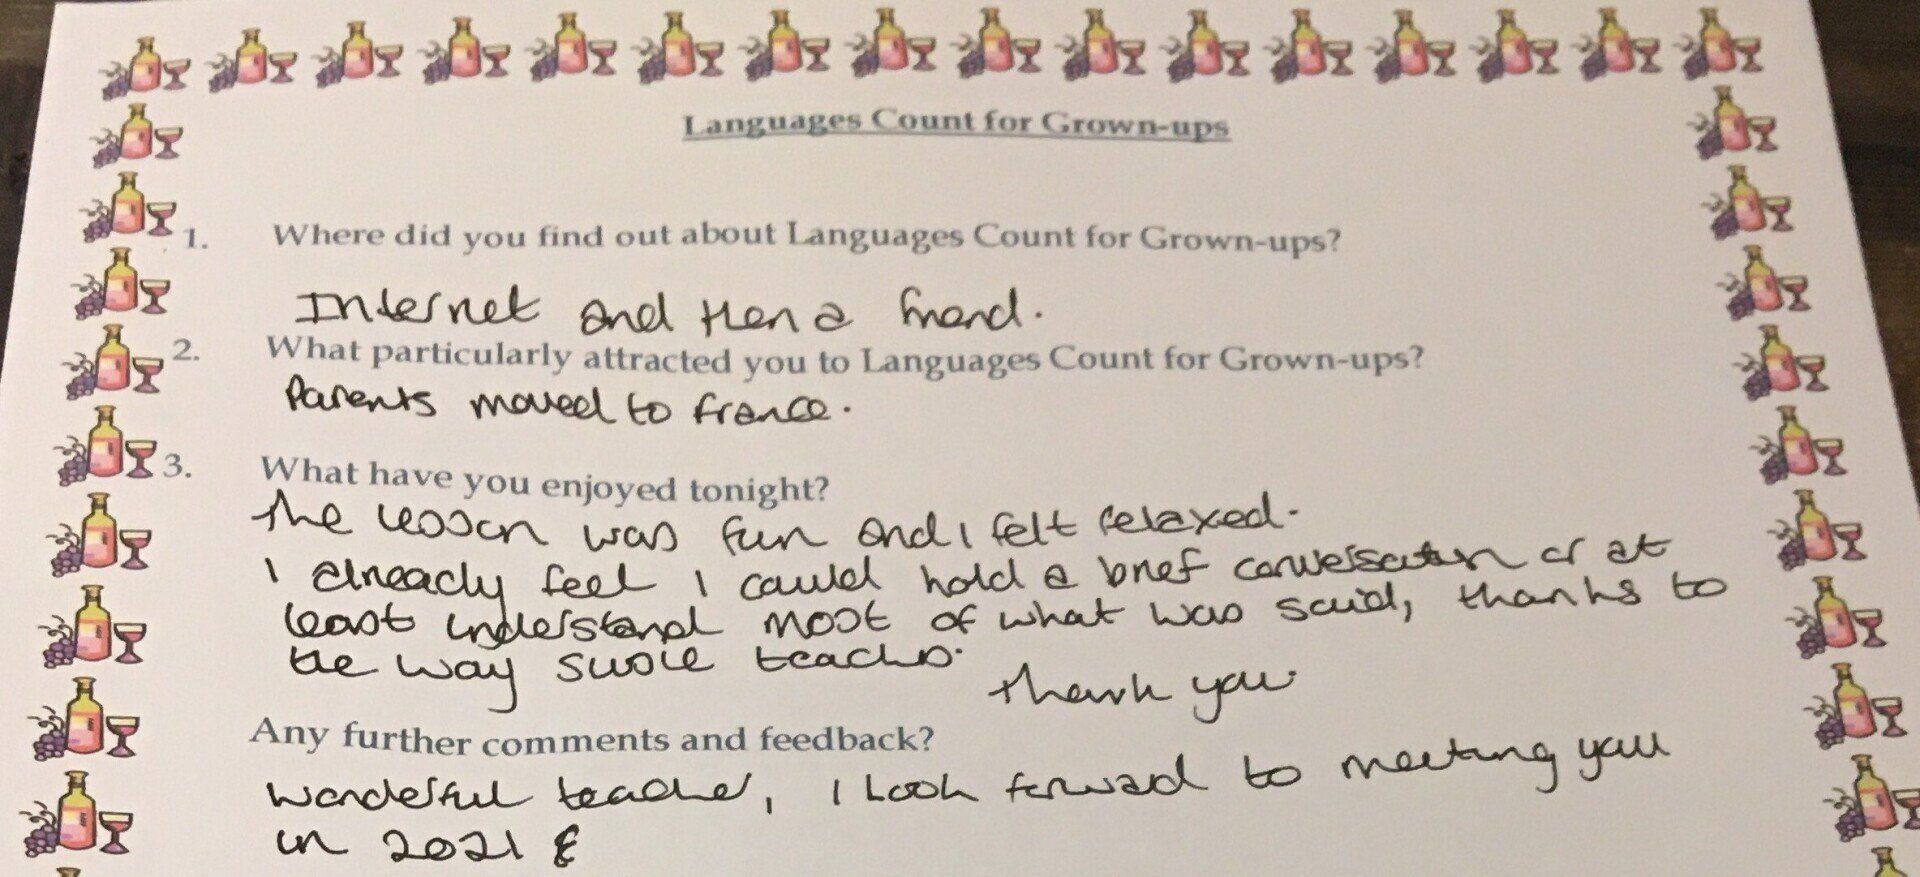 Languages Count for Grown-ups
1. Where did you find out about Languages Count for Grown-ups?
Internet and then a friend.
2. What particularly attracted you to Languages Count for Grown-ups?
Parents moved to France.
3. What have you enjoyed tonight?
The lesson was fun and I felt relaxed.
I already feel I could hold a brief conversation or at
least understand most of what was said, thanks to
the way teaches.
Thank you.
Any further comments and feedback?
Wonderful teacher, I look forward to meeting you
in 2021